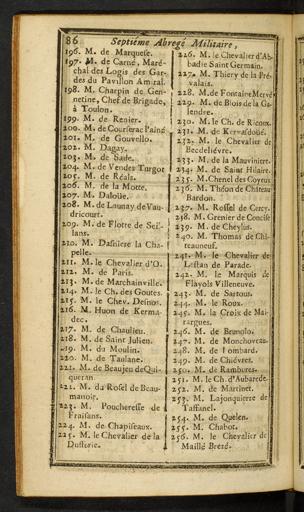 86 Septiéme Abregé Militaire,
196. M. de Marquese.
197. M. de Carné, Maré-
chal des Logis des Gar-
des du Pavillon Amiral.
198. M. Charpin de Gen-
netine, Chef de Brigade,
à Toulon.
199. M. de Renier.
200. M. de Courserac Paîné
201. M. de Gouvello.
202. M. Dagay.
203. M. de Sade.
204. M. de Vendes Turgot
205. M. de Réals.
206. M. de la Motte.
207. M. Daloüe.
208. M. de Launay de Vau-
dricourt.
209. M. de Flotte de Seil-
lans.
210. M. Dasniere la Cha-
pelle.
211. M. le Chevalier d'O.
212. M. de Paris.
213. M. de Marchainville.
214. M. le Ch. des Goutes.
215. M. le Chev. Desnos.
216. M. Huon de Kerma-
dec.
217. M. de Chaulieu.
218. M. de Saint Julien.
219. M. du Moulin.
220. M. de Taulane.
221. M. de Beaujeu de Qui-
queran.
222. M. du Rosel de Beau-
manoir.
223. M. Poucheresse de
Fraisans.
224. M. de Chapiseaux.
225. M. le Chevalier de la
Dufferie.
226. M. le Chevalier d'Ab-
badie Saint Germain.
227. M. Thiery de la Pré-
valais.
228. M. de Fontaine Mervé
229. M. de Blois de la Ga-
lendre.
230. M. le Ch. de Ricoux.
231. M. de Kervasdoüé.
232. M. le Chevalier de
Becdelièvre.
233. M. de la Mauviniere.
234. M. de Saint Hilaire.
235. M. Chenel des Coyeux
236. M. Théon de Château
Bardon.
237. M. Rossel de Cercy.
238. M. Grenier de Concise
239. M. de Cheylus.
240. M. Thomas de Châ-
teauneuf.
241. M. le Chevalier de
Lestan de Parade.
242. M. le Marquis de
Flayols Villeneuve.
243. M. de Sartous.
244. M. le Roux.
245. M. la Croix de Mai-
rargues.
246. M. de Brunolo.
247. M. de Monchoveau.
248. M. de Lombard.
249. M. de Chiévret.
250. M. de Rambures.
251. M. le Ch. d'Aubarede.
252. M. de Martinet.
253. M. Lajonquierre de
Taffanel.
254. M. de Quelen.
255. M. Chabot.
256. M. le Chevalier de
Maillé Brezé.